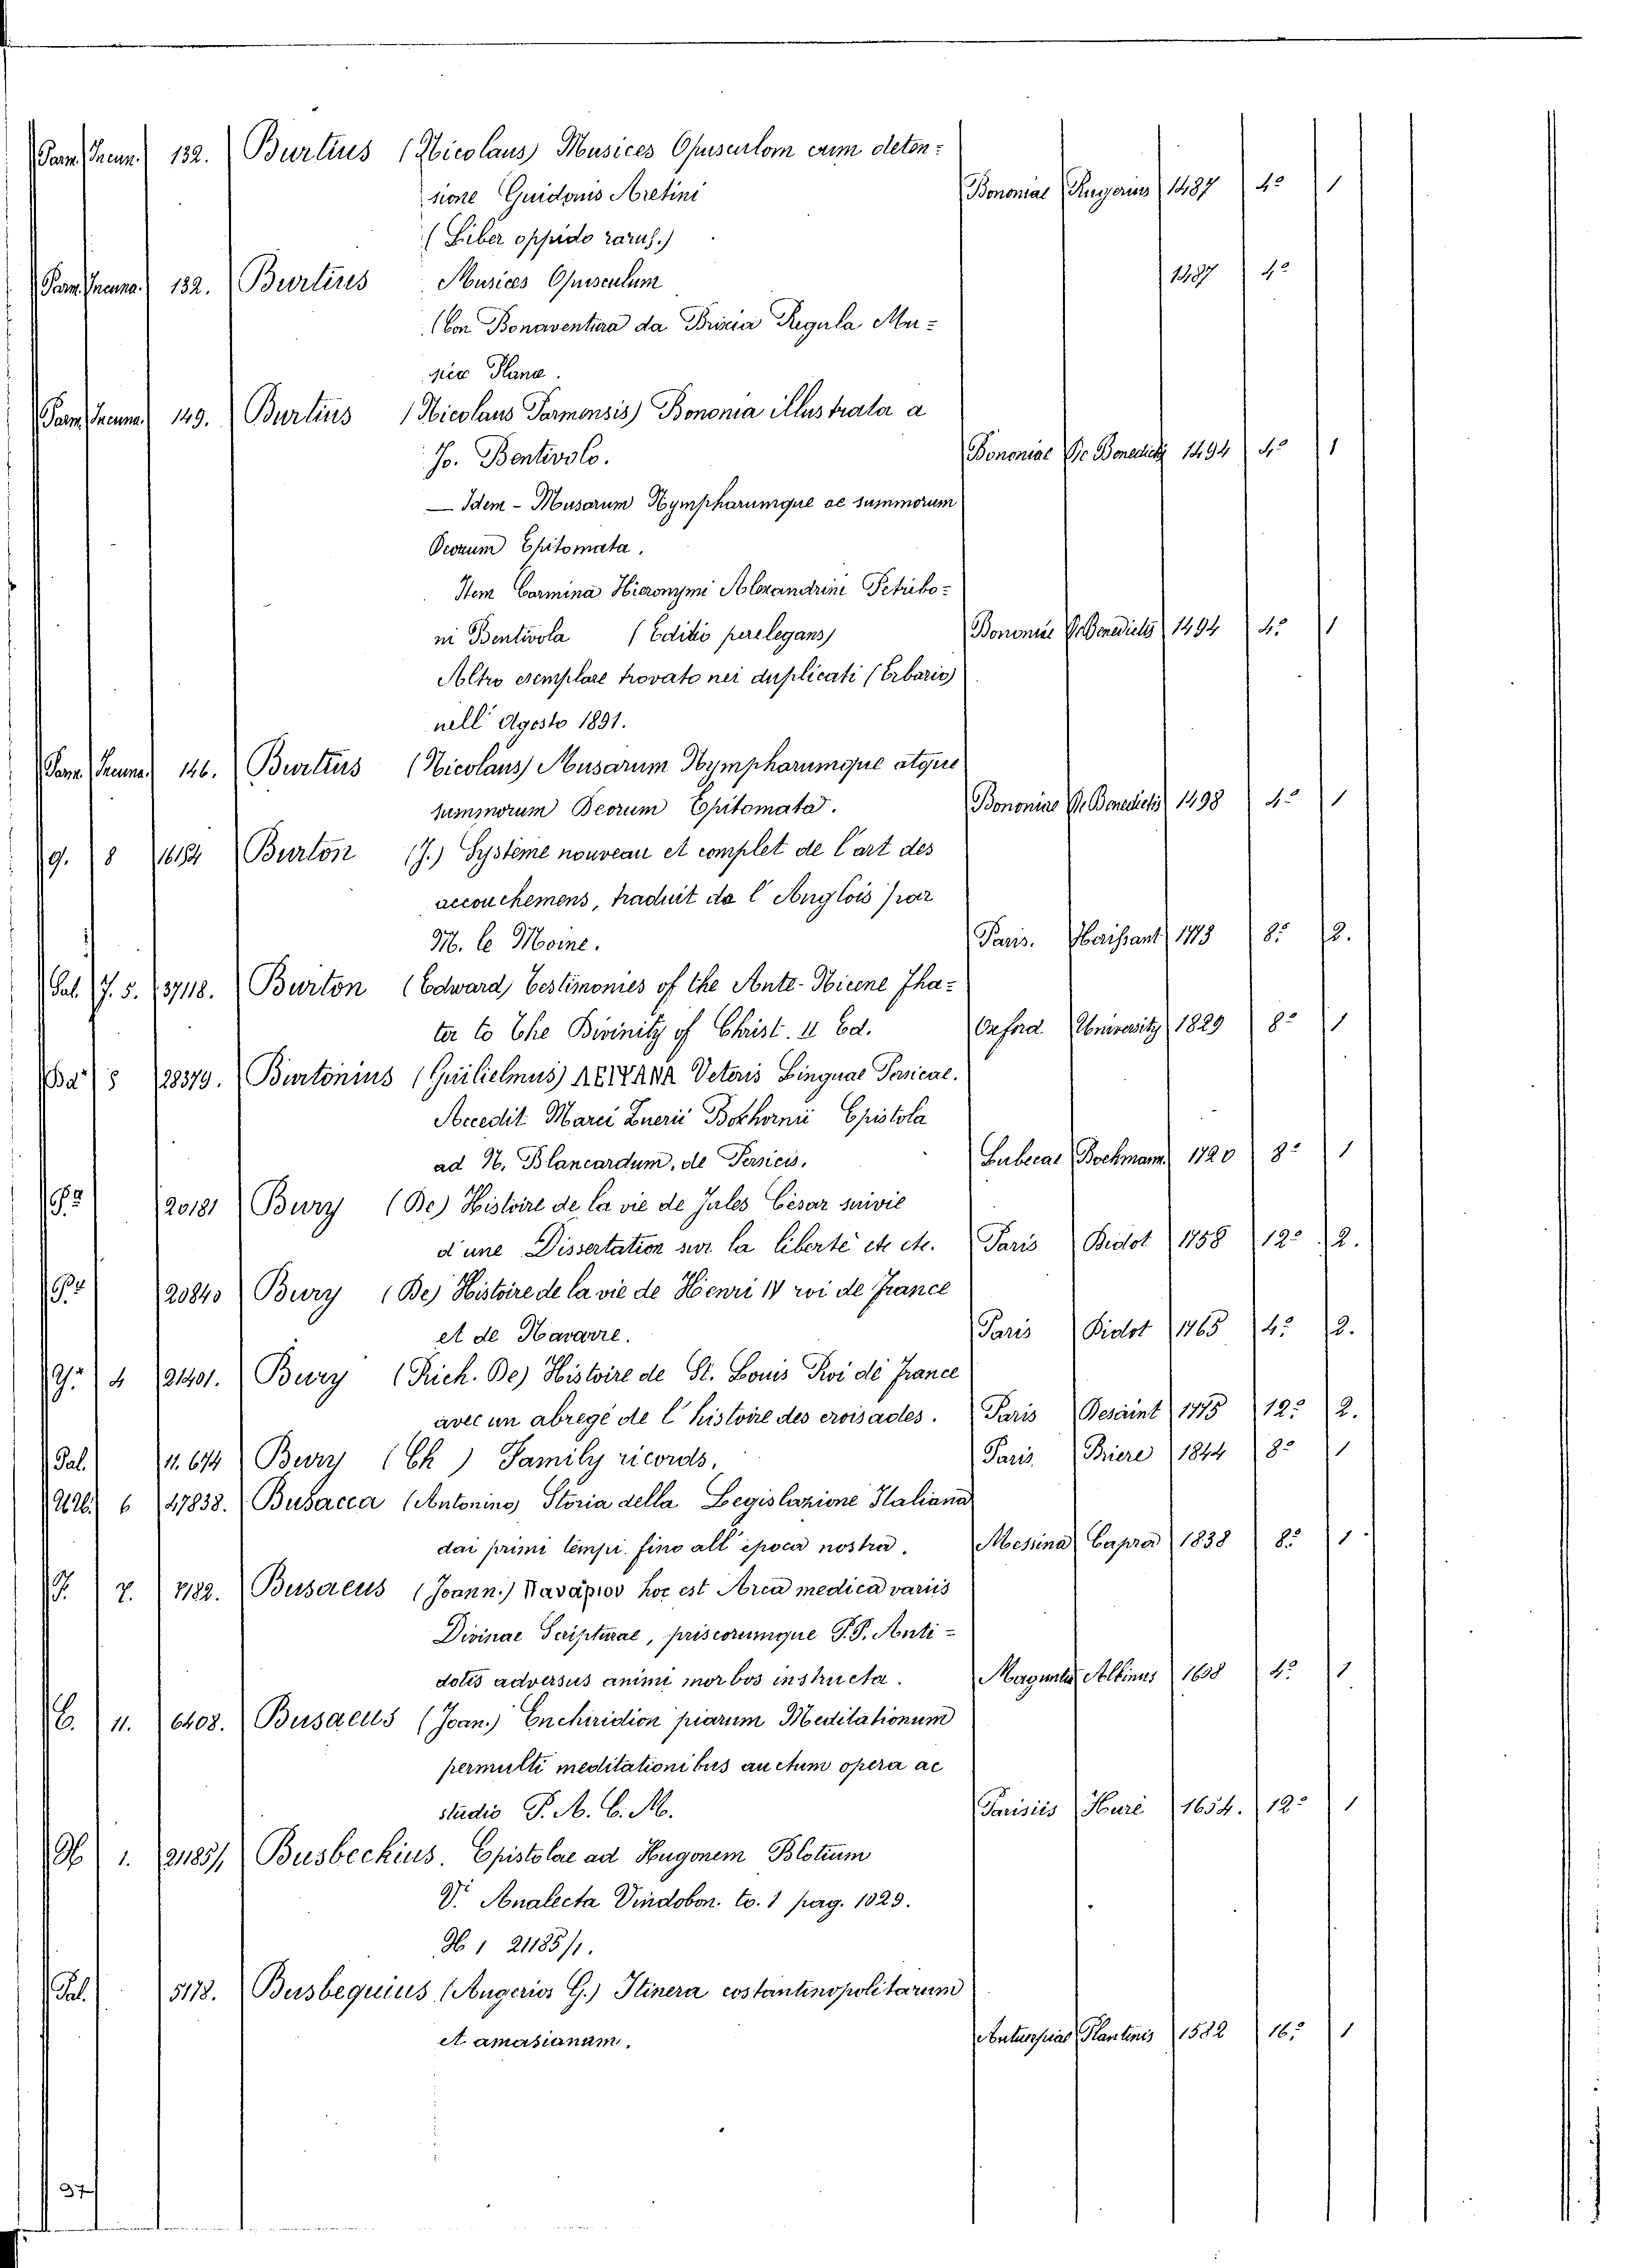 Parm. Incun. 132. Burtius (Nicolaus) Musices Opusculom cum deten=
sione Guidonis Aretini Bononiae Rugerius 1487 4º 1
(Liber oppido rarus.)
Parm. Incuna. 132. Burtius Musices Opusculum 1487 4º
(Con Bonaventura da Briscia Regula Mu=
sice Plane.
Parm. Incuna. 149. Burtius (Nicolaus Parmensis) Bononia illustrata a
Jo. Bentivolo. Bononiae De Benedictis 1494 4º 1
— Idem - Musarum Nympharumque ac summorum
Deorum Epitomata.
Item Carmina Hieronymi Alexandrini Petribo=
ni Bentivola (Editio perelegans) Bononie De Benedictis 1494 4º 1
Altro esemplare trovato nei duplicati (Erbario)
nell' Agosto 1891.
Parm. Incuna. 146. Burtius (Nicolaus) Musarum Nympharumque atque
summorum Deorum Epitomata. Bononiae De Benedictis 1498 4º 1
G. 8 16154 Burton (J.) Systeme nouveau et complet de l'art des
accouchemens, traduit de l'Anglois par
M. le Moine. Paris. Haissant 1773 8º 2.
Pal. J. 5. 37118. Burton (Edward) Testimonies of the Ante-Nicene Fha=
ter to The Divinity of Christ. II Ed. Oxford University 1829 8º 1
5 28379. Burtonius (Guilielmus) ΛΕΙΨΑΝΑ Veteris Linguae Persicae.
Accedit Marci Zuerii Boxhornii Epistola
ad N. Blancardum, de Persicis. Lubecae Bockmann 1720 8º 1
P.a 20181 Bury (De) Histoire de la vie de Jules César suivie
d'une Dissertation sur la liberté etc etc. Paris Didot 1758 12º 2.
P.a 20840 Bury (De) Histoire de la vie de Henri IV roi de France
et de Navarre. Paris Didot 1765 4º 2.
4 21401. Bury (Rich. De) Histoire de St. Louis Roi de France
avec un abregé de l'histoire des croisades. Paris Desaint 1775 12º 2.
Pal. 11.674 Bury (Ch ) Family ricords. Paris. Briere 1844 8º 1
6 47838. Busacca (Antonino) Storia della Legislazione Italiana
dai primi tempi fino all'epoca nostra. Messina Capra 1838 8º 1
F. 7. 7182. Busaeus (Joann.) Πανάριον hoc est Arca medica variis
Divinae Scripturae, priscorumque P.P. Anti=
dotis adversus animi morbos instructa. Maguntie Albinus 1608 4º 1
C. 11. 6408. Busaeus (Joan.) Enchiridion piarum Meditationum
permulti meditationibus auctum opera ac
studio P. A. C. M. Parisiis Huré 1654. 12º 1
H 1. 21185/1 Busbeckius. Epistolae ad Hugonem Blotium
V. Analecta Vindobon. to. 1 pag. 1023.
H 1 21185/1.
Pal. 5178. Busbequius (Augerius G.) Itinera costantinopolitarum
et amasianum. Antuerpiae Plantinis 1582 16º 1
37